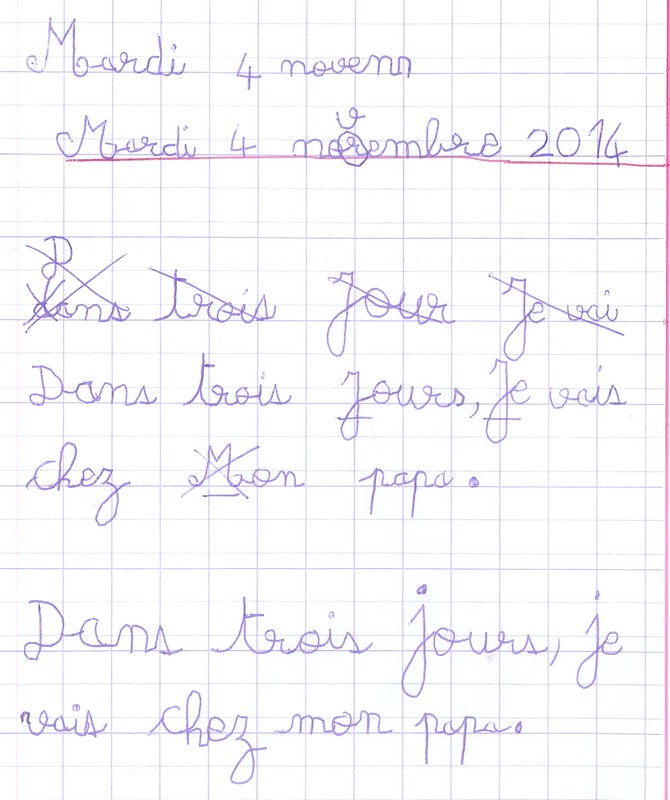 Mardi 4 novenn
Mardi 4 novembre 2014
Dans trois Jour Je vai
Dans trois Jours, Je vais
chez Mon papa.
Dans trois jours, je
vais chez mon papa.